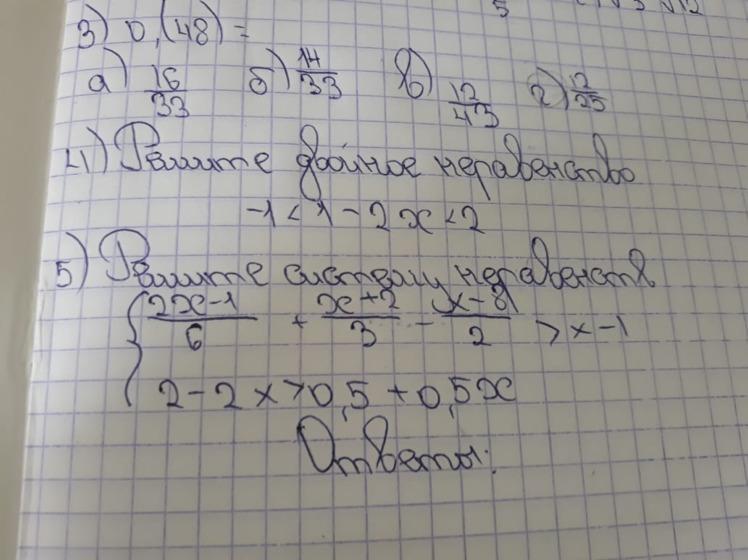 3) 0,(48) =
а) 16/33 б) 14/33 в) 12/43 г) 12/25
4) Решите двойное неравенство
-1 < 1 - 2x < 2
5) Решите систему неравенств
{ (2x-1)/6 + (x+2)/3 - (x-8)/2 > x-1
2-2x > 0,5 + 0,5x
Ответы: